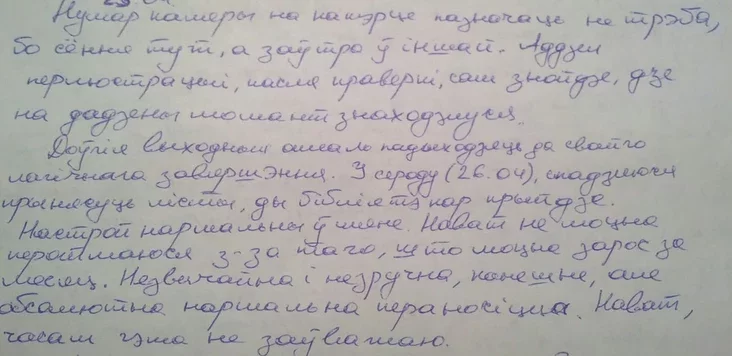 Нумар камеры на канверце пазначаць не трэба,
бо сёння тут, а заўтра ў іншай. Аддзел
перлюстрацыі, пасля праверкі, сам знойдзе, дзе
на дадзены момант знаходжуся.
Доўгія выходныя амаль падыходзяць да свайго
лагічнага завяршэння. У сераду (26.04), спадзяюся
прынясуць лісты, ды бібліятэкар прыйдзе.
Настрой нармальны ў мяне. Нават не моцна
пераймаюся з-за таго, што моцна зарос за
месяц. Незвычайна і нязручна, канешне, але
абсалютна нармальна пераносіцца. Нават,
часам гэта не заўважаю.